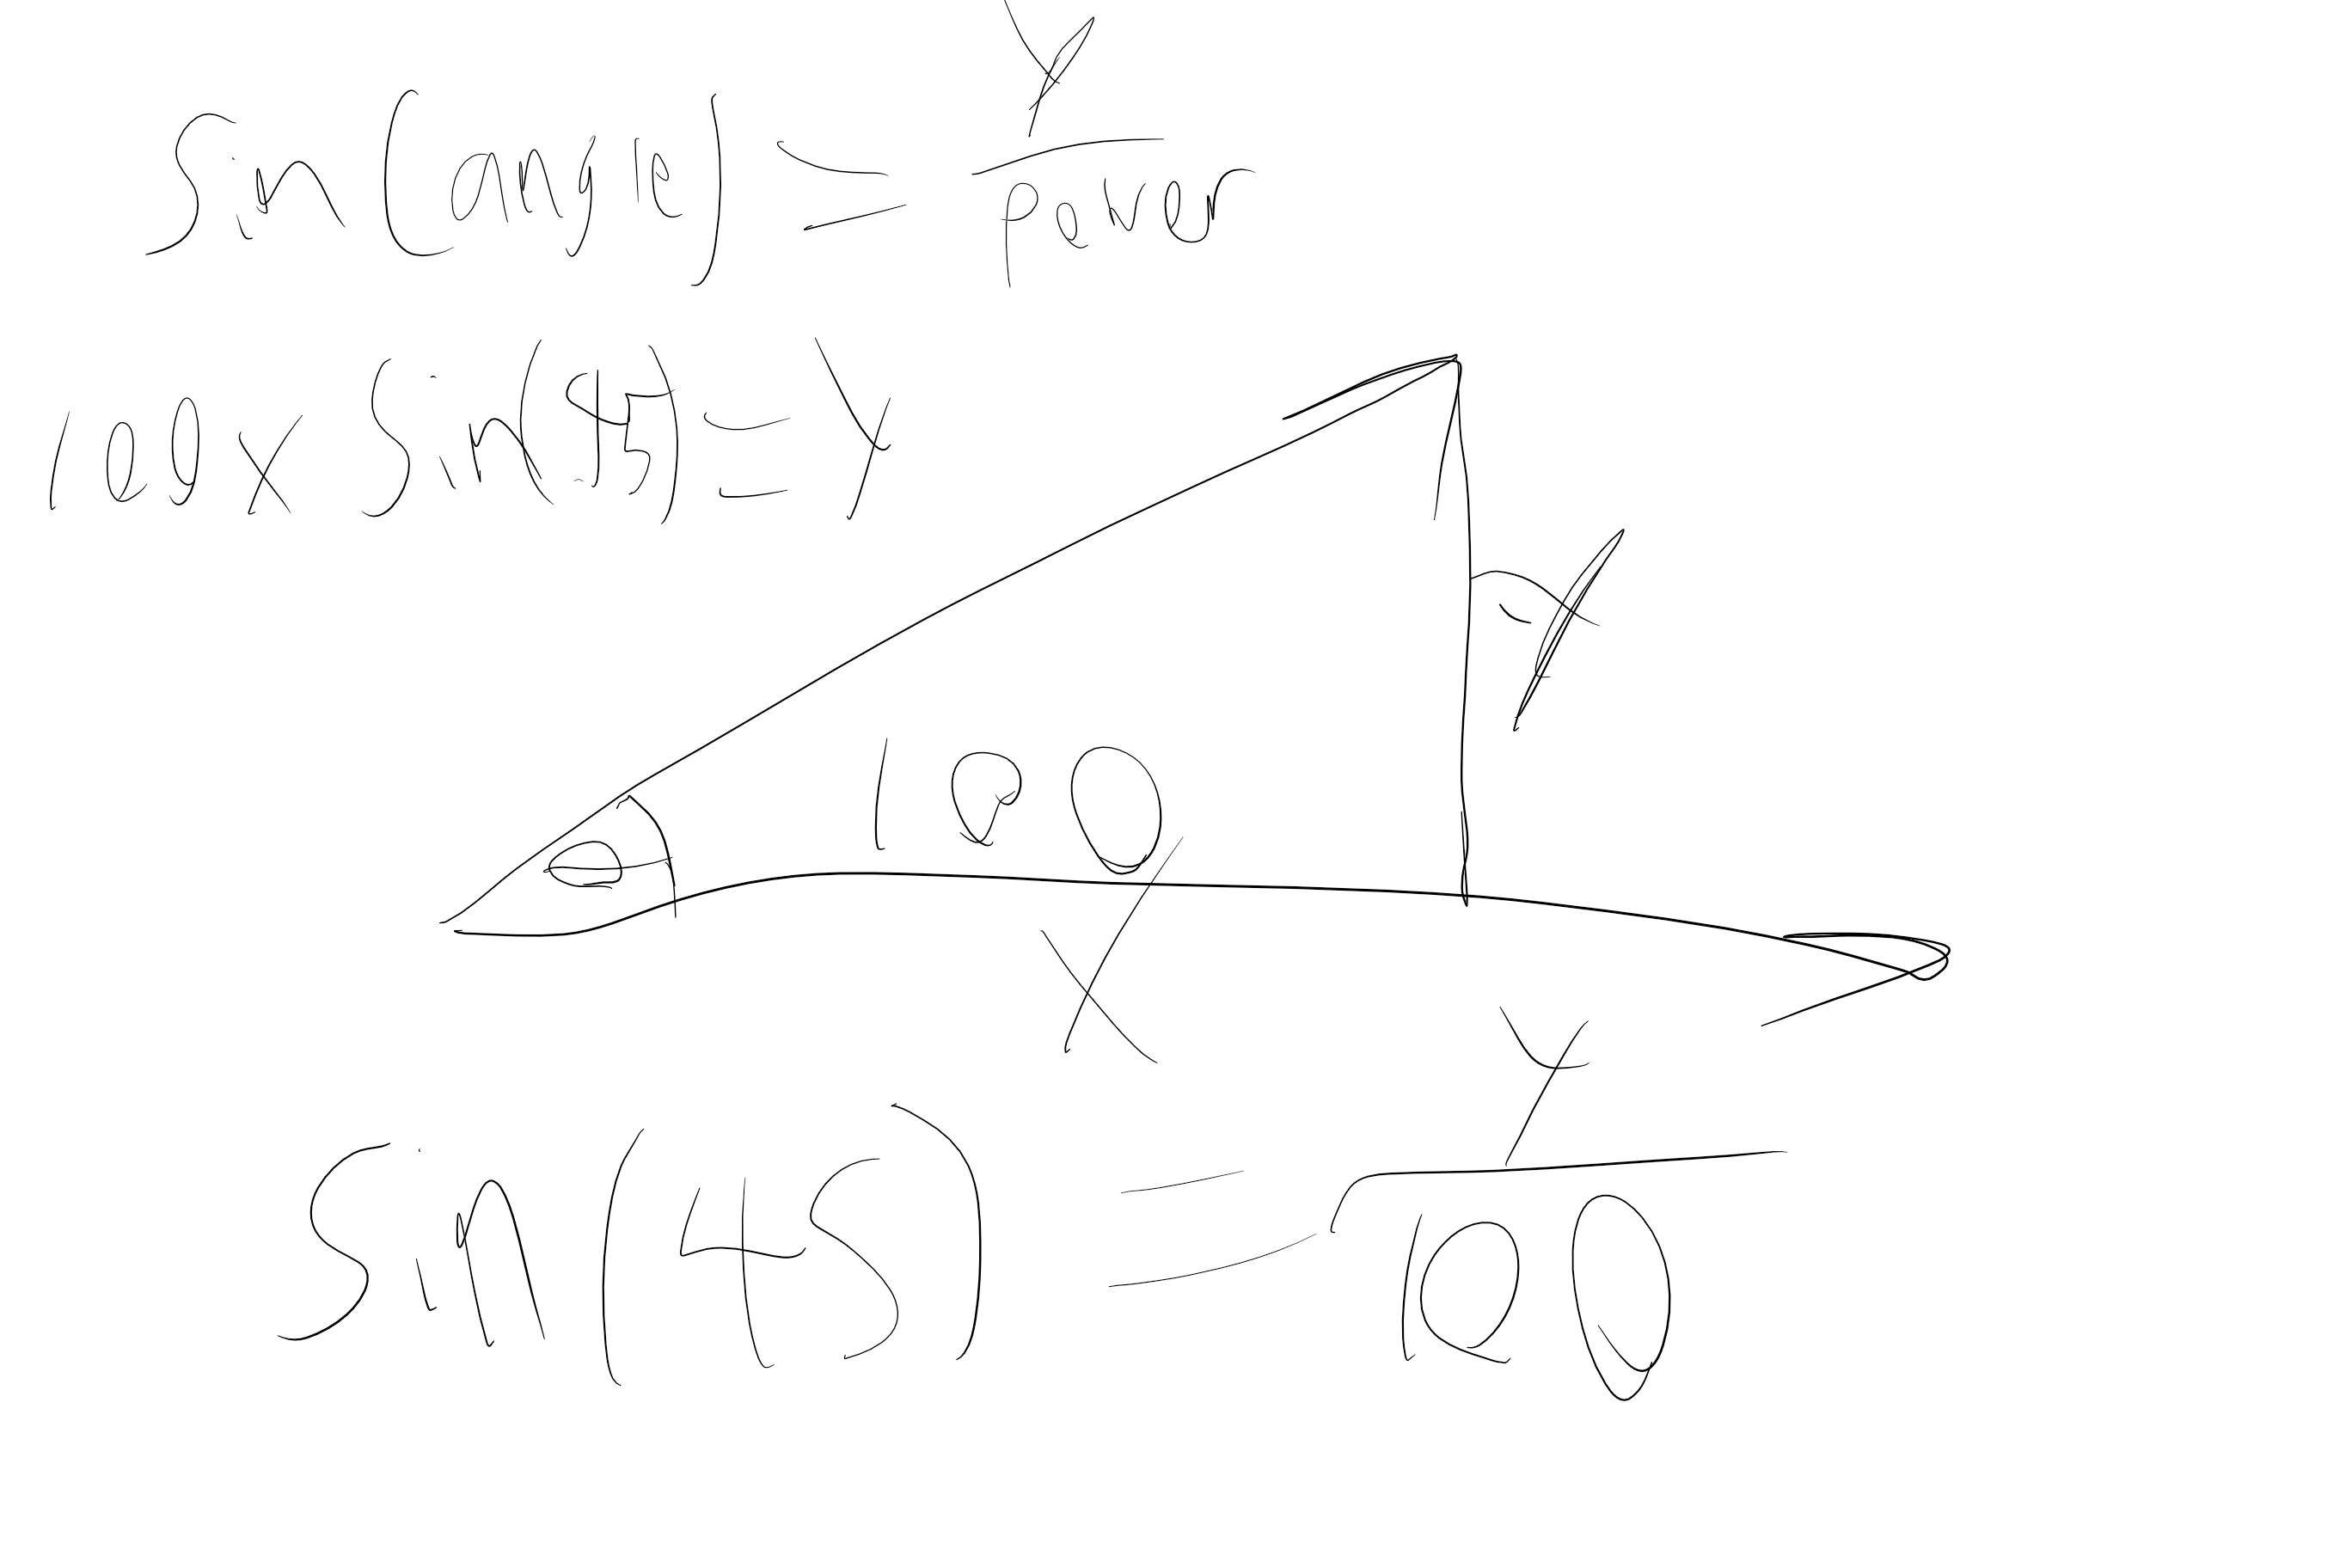 Sin(angle) = Y
power
100 x Sin(45) = Y
Y
θ
100
X
Sin(45) = Y
100